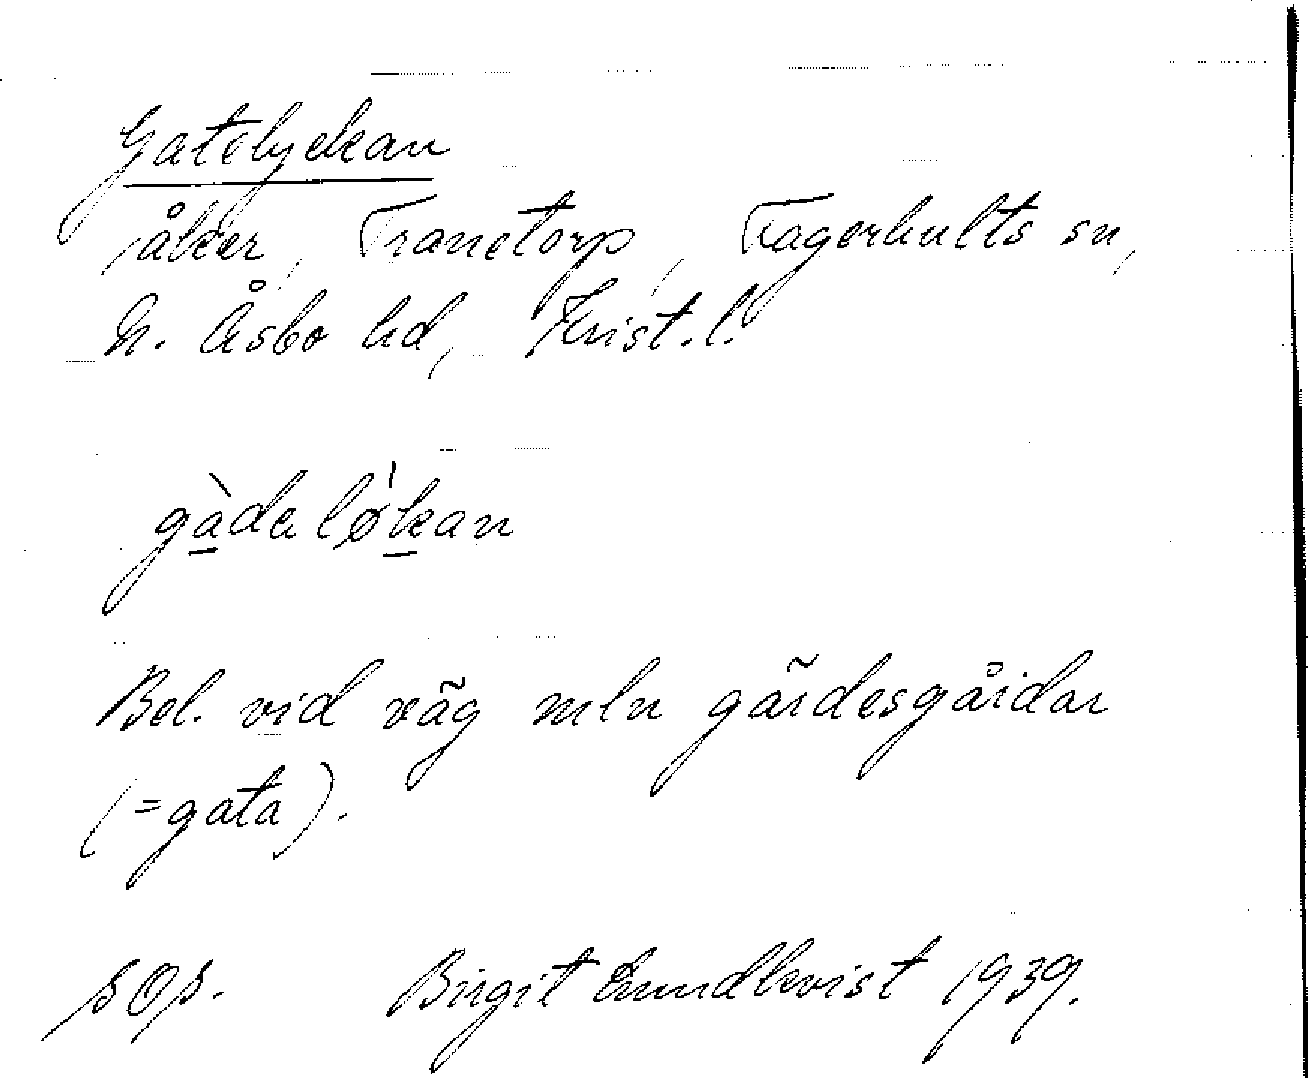 Gatelyckan
åker, Tranetorp, Fagerhults sn,
N. Åsbo hd, Krist. l.
gàdelø'kan
Bel. vid väg mln gärdesgårdar
(=gata).
Birgit Lundkvist 1939.